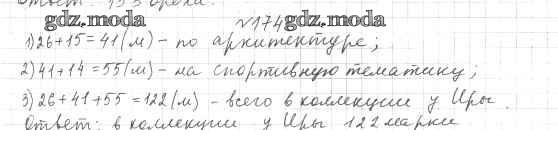 Ответ: 153 ореха.
gdz.moda №174 gdz.moda
1) 26+15=41(м) - по архитектуре;
2) 41+14=55(м) - на спортивную тематику;
3) 26+41+55=122(м) - всего в коллекции у Иры.
Ответ: в коллекции у Иры 122 марки.